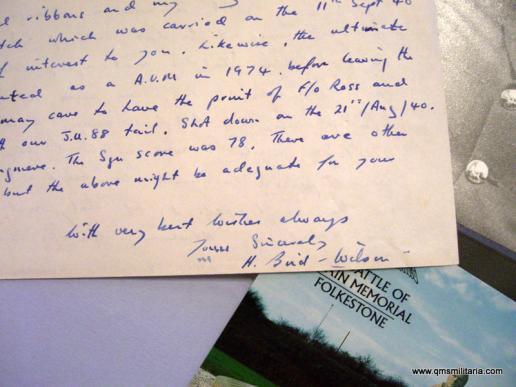 ribbons and my
which was carried on the 11th Sept 40
interest to you. Likewise, the ultimate
as a A.V.M in 1974. before leaving the
may care to have the print of F/O Ross and
our J.U.88 tail. Shot down on the 21st/Aug/40.
The Sqn score was 78. There are other
but the above might be adequate for your
With very best wishes always
Yours Sincerely
H. Bird-Wilson
BATTLE OF
MEMORIAL
FOLKESTONE
www.qmsmilitaria.com